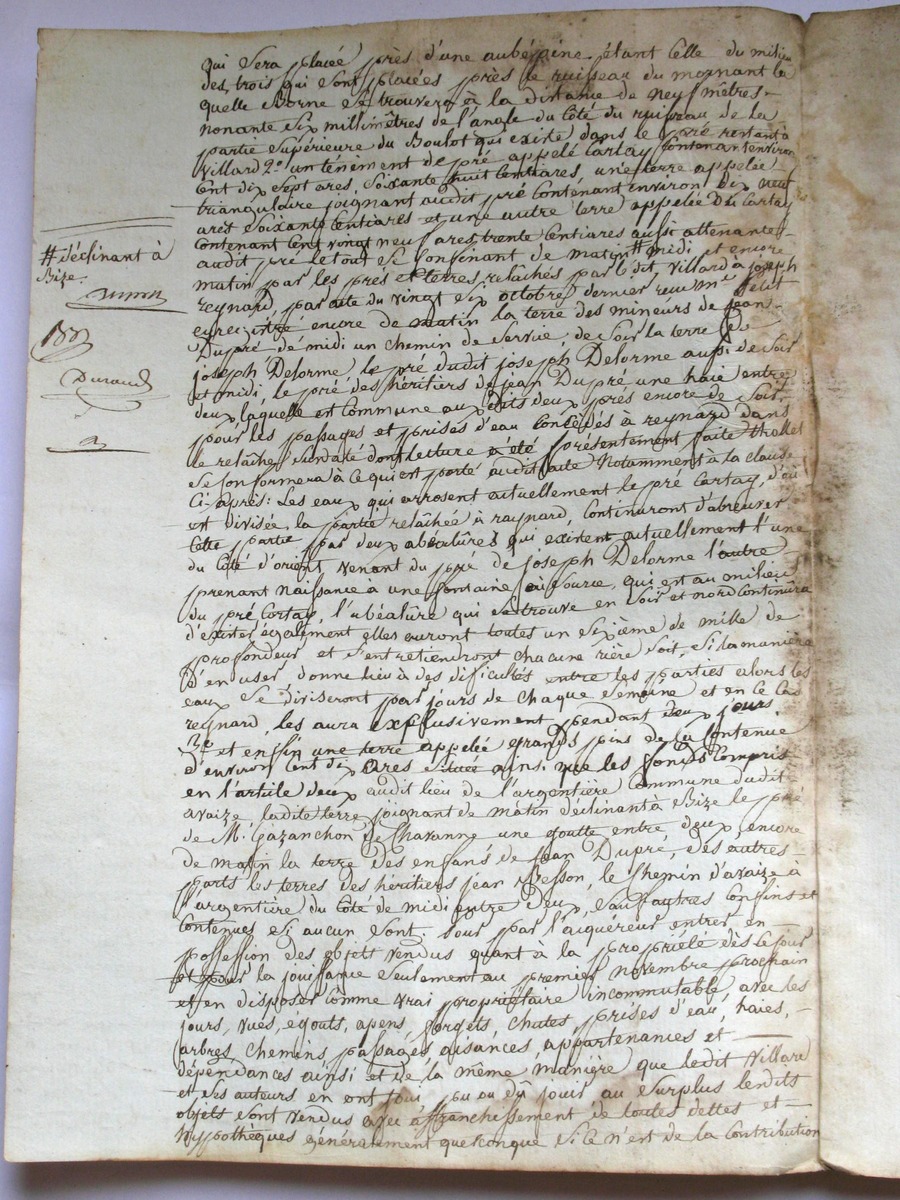 qui sera placée près d'une aubépine étant celle du milieu
des trois qui sont placées près le ruisseau du mornant la
quelle Borne se trouvera à la distance de neuf mètres
nonante six millimètres de l'angle du côté du ruisseau de la
partie supérieure du Boulot qui existe dans le pré restant à
Villard 2º un tènement de pré appelé Cartay contenant environ
Cent dix sept ares, soixante huit centiares, une terre appelée
triangulaire joignant audit pré contenant environ dix neuf
ares soixante centiares et une autre terre appelée Du Cartay
contenant cent vingt neuf ares trente centiares aussi attenante
audit pré le tout se confinant de matin # midi et encore
# déclinant à
Bize
matin par les prés et terres relâchés par ledit Villard à joseph
reynard, par acte du vingt six octobre dernier recu Me petit
encore de matin la terre des mineurs de Jean
Dupré de midi un chemin de servie, de soir la terre de
joseph Delorme, le pré dudit joseph Delorme aussi de soir
Durand
et midi, le pré des héritiers de Jean Dupré, une haie entre
deux laquelle est commune aux dits deux prés encore de soir,
pour les passages et prises d'eau concédés à reynard dans
le relâche sus daté dont lecture a été présentement faite thollet
se conformera à ce qui est porté audit acte Notamment à la clause
Ci-après: Les eaux qui arrosent actuellement le pré Cartay, d'où
est divisée la partie relâchée à raynard, Continuront d'abreuver
cette partie par deux abéalures qui existent actuellement l'une
du Côté d'orient venant du pré de joseph Delorme l'autre
prenant Naissance à une fontaine ou source, qui est au milieu
du pré Cartay, l'abéalure qui se trouve en soir et nord Continura
d'exister également elles auront toutes un sixième de mille de
profondeur et s'entretiendront chacune rière soit, si la manière
d'en user donne lieu à des difficultés entre les parties alors les
eaux se diviseront par jours de chaque Semaine et en ce cas
reynard, les aura exclusivement pendant deux jours.
3e et enfin une terre appelée grands pins de la contenue
d'environ cent dix ares située ainsi que les fonds compris
en l'article deux audit lieu de l'argentière Commune dudit
avaize, ladite terre joignant de matin déclinant à Bize le pré
de M. Gazanchon de Chavanne une goutte entre deux, encore
de matin la terre des enfans de Jean Dupré, des autres
parts les terres des héritiers jean Besson, le chemin d'avaize à
l'argentière du Côté de midi entre deux, sauf autres Confins et
Contenues si aucun sont. Pour par l'acquéreur entrer en
possession des objets vendus quant à la propriété dès ce jour
et pour la jouissance seulement au premier novembre prochain
et en disposer comme vrai propriétaire incommutable avec les
jours, vues, égouts, apens, forgets, chutes, prises d'eau, haies,
arbres, chemins, passages, aisances, appartenances et
dépendances ainsi et de la même manière que ledit Villard
et ses auteurs en ont joui pu ou dû jouir au surplus lesdits
objets sont vendus avec affranchissement de toutes dettes et
hypothèques généralement quelconque si ce n'est de la Contribution